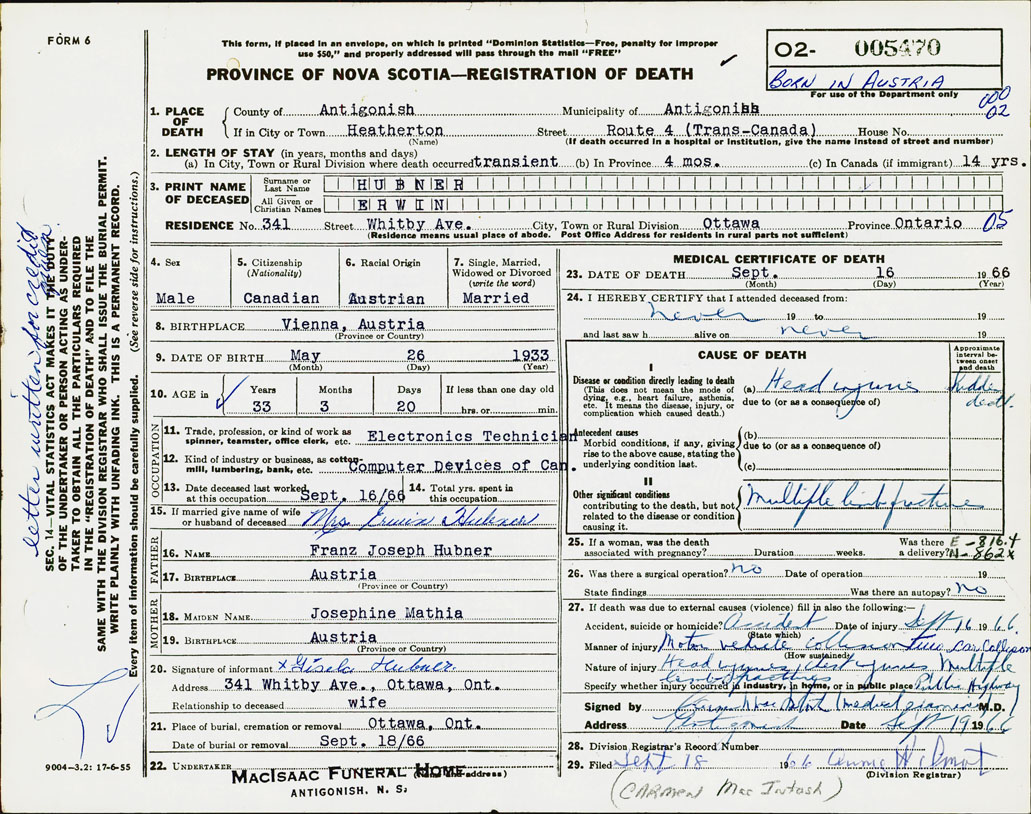 FORM 6
This form, if placed in an envelope, on which is printed "Dominion Statistics—Free, penalty for improper
use $50," and properly addressed will pass through the mail "FREE"
PROVINCE OF NOVA SCOTIA—REGISTRATION OF DEATH
02- 005470
BORN IN AUSTRIA
For use of the Department only
000
02
1. PLACE OF DEATH County of Antigonish Municipality of Antigonish
If in City or Town Heatherton Street Route 4 (Trans-Canada) House No.
(Name) (If death occurred in a hospital or institution, give the name instead of street and number)
2. LENGTH OF STAY (in years, months and days)
(a) In City, Town or Rural Division where death occurred transient (b) In Province 4 mos. (c) In Canada (if immigrant) 14 yrs.
3. PRINT NAME OF DECEASED Surname or Last Name HUBNER
All Given or Christian Names ERWIN
RESIDENCE No. 341 Street Whitby Ave. City, Town or Rural Division Ottawa Province Ontario 05
(Residence means usual place of abode. Post Office Address for residents in rural parts not sufficient)
4. Sex
Male
5. Citizenship
(Nationality)
Canadian
6. Racial Origin
Austrian
7. Single, Married,
Widowed or Divorced
(write the word)
Married
8. BIRTHPLACE Vienna, Austria
(Province or Country)
9. DATE OF BIRTH May 26 1933
(Month) (Day) (Year)
10. AGE in Years Months Days If less than one day old
33 3 20 hrs. or min.
OCCUPATION
11. Trade, profession, or kind of work as
spinner, teamster, office clerk, etc. Electronics Technician
12. Kind of industry or business, as cotton-
mill, lumbering, bank, etc. Computer Devices of Can.
13. Date deceased last worked
at this occupation Sept. 16/66
14. Total yrs. spent in
this occupation
15. If married give name of wife
or husband of deceased Mrs Erwin Hubner
FATHER
16. NAME Franz Joseph Hubner
17. BIRTHPLACE Austria
(Province or Country)
MOTHER
18. MAIDEN NAME Josephine Mathia
19. BIRTHPLACE Austria
(Province or Country)
20. Signature of informant x Gisela Hubner
Address 341 Whitby Ave., Ottawa, Ont.
Relationship to deceased wife
21. Place of burial, cremation or removal Ottawa, Ont.
Date of burial or removal Sept. 18/66
22. UNDERTAKER MACISAAC FUNERAL HOME
(Name and address)
ANTIGONISH, N. S.
MEDICAL CERTIFICATE OF DEATH
23. DATE OF DEATH Sept. 16 1966
(Month) (Day) (Year)
24. I HEREBY CERTIFY that I attended deceased from:
never 19 to 19
and last saw h alive on never 19
CAUSE OF DEATH
Approximate
interval be-
tween onset
and death
I
Disease or condition directly leading to death
(This does not mean the mode of
dying, e.g., heart failure, asthenia,
etc. It means the disease, injury, or
complication which caused death.)
(a) Head injury Sudden death.
due to (or as a consequence of)
Antecedent causes
Morbid conditions, if any, giving
rise to the above cause, stating the
underlying condition last.
(b)
due to (or as a consequence of)
(c)
II
Other significant conditions
contributing to the death, but not
related to the disease or condition
causing it.
Multiple limb fracture
25. If a woman, was the death Was there E-816.4
associated with pregnancy? Duration weeks. a delivery? N-862X
26. Was there a surgical operation? no Date of operation 19
State findings Was there an autopsy? no
27. If death was due to external causes (violence) fill in also the following:—
Accident, suicide or homicide? Accident Date of injury Sept 16 1966.
(State which)
Manner of injury Motor vehicle collision Two car Collision
(How sustained)
Nature of injury Head injuries, chest injuries multiple
limb fractures
Specify whether injury occurred in industry, in home, or in public place Public Highway
Signed by (medical examiner) M.D.
Address Antigonish Date Sept 19 1966
28. Division Registrar's Record Number
29. Filed Sept 18 1966
(Division Registrar)
(CARMEN Mac Intosh)
9004—3.2: 17-6-55
SEC. 14—VITAL STATISTICS ACT MAKES IT THE DUTY
OF THE UNDERTAKER OR PERSON ACTING AS UNDER-
TAKER TO OBTAIN ALL THE PARTICULARS REQUIRED
IN THE "REGISTRATION OF DEATH" AND TO FILE THE
SAME WITH THE DIVISION REGISTRAR WHO SHALL ISSUE THE BURIAL PERMIT.
WRITE PLAINLY WITH UNFADING INK. THIS IS A PERMANENT RECORD.
Every item of information should be carefully supplied. (See reverse side for instructions.)
letter written for